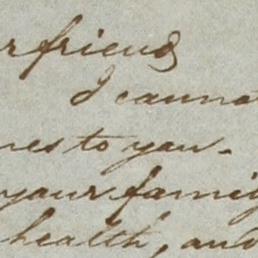 r friend
I canno
nes to you -
your famil
health, and